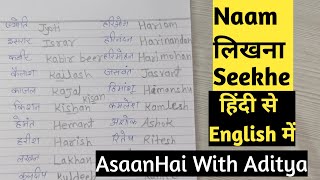 ज्योति Jyoti हरिओम Hariom
इसरार Israr हरिनंदन Harinandan
कबीर Kabir beer Harimohan
कैलाश Kailash जसवंत Jasvant
काजल Kajal Himanshu
kisan
किशन Kishan कमलेश Kamlesh
हेमंत Hemant
हरीश Harish रितेश Ritesh
लखन Lakhan
कुलदीप
Naam
लिखना
Seekhe
हिंदी से
English में
AsaanHai With Aditya